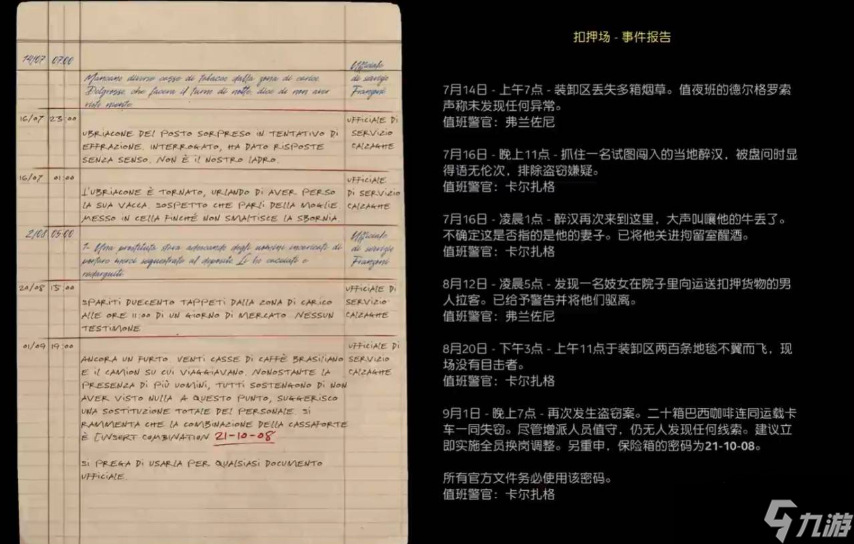 14/07 07:00
Mancano diverse casse di tabacco dalla zona di carico
Delgrosso, che faceva il turno di notte, dice di non aver
visto niente
Ufficiale
di servizio
Franzoni
16/07 23:00
UBRIACONE DEL POSTO SORPRESO IN TENTATIVO DI
EFFRAZIONE. INTERROGATO, HA DATO RISPOSTE
SENZA SENSO. NON È IL NOSTRO LADRO.
UFFICIALE DI
SERVIZIO
CALZAGHE
16/07 01:00
L'UBRIACONE È TORNATO, URLANDO DI AVER PERSO
LA SUA VACCA. SOSPETTO CHE PARLI DELLA MOGLIE
MESSO IN CELLA FINCHÈ NON SMALTISCE LA SBORNIA.
UFFICIALE
DI SERVIZIO
CALZAGHE
05:00
degli uomini incaricati di
portare merce sequestrata al deposito Li ho cacciati e
Ufficiale
di servizio
Franzoni
20/08 15:00
SPARITI DUECENTO TAPPETI DALLA ZONA DI CARICO
ALLE ORE 11:00 DI UN GIORNO DI MERCATO. NESSUN
TESTIMONE
UFFICIALE DI
SERVIZIO
CALZAGHE
01/09 19:00
ANCORA UN FURTO. VENTI CASSE DI CAFFÈ BRASILIANO
E IL CAMION SU CUI VIAGGIAVANO. NONOSTANTE LA
PRESENZA DI PIÙ UOMINI, TUTTI SOSTENGONO DI NON
AVER VISTO NULLA A QUESTO PUNTO, SUGGERISCO
UNA SOSTITUZIONE TOTALE DEL PERSONALE. SI
RAMMENTA CHE LA COMBINAZIONE DELLA CASSAFORTE
È [INSERT COMBINATION 21-10-08
SI PREGA DI USARLA PER QUALSIASI DOCUMENTO
UFFICIALE.
UFFICIALE DI
SERVIZIO
CALZAGHE
扣押场 - 事件报告
7月14日 - 上午7点 - 装卸区丢失多箱烟草。值夜班的德尔格罗索
声称未发现任何异常。
值班警官：弗兰佐尼
7月16日 - 晚上11点 - 抓住一名试图闯入的当地醉汉，被盘问时显
得语无伦次，排除盗窃嫌疑。
值班警官：卡尔扎格
7月16日 - 凌晨1点 - 醉汉再次来到这里，大声叫嚷他的牛丢了。
不确定这是否指的是他的妻子。已将他关进拘留室醒酒。
值班警官：卡尔扎格
8月12日 - 凌晨5点 - 发现一名妓女在院子里向运送扣押货物的男
人拉客。已给予警告并将他们驱离。
值班警官：弗兰佐尼
8月20日 - 下午3点 - 上午11点于装卸区两百条地毯不翼而飞，现
场没有目击者。
值班警官：卡尔扎格
9月1日 - 晚上7点 - 再次发生盗窃案。二十箱巴西咖啡连同运载卡
车一同失窃。尽管增派人员值守，仍无人发现任何线索。建议立
即实施全员换岗调整。另重申，保险箱的密码为21-10-08。
所有官方文件务必使用该密码。
值班警官：卡尔扎格
九游